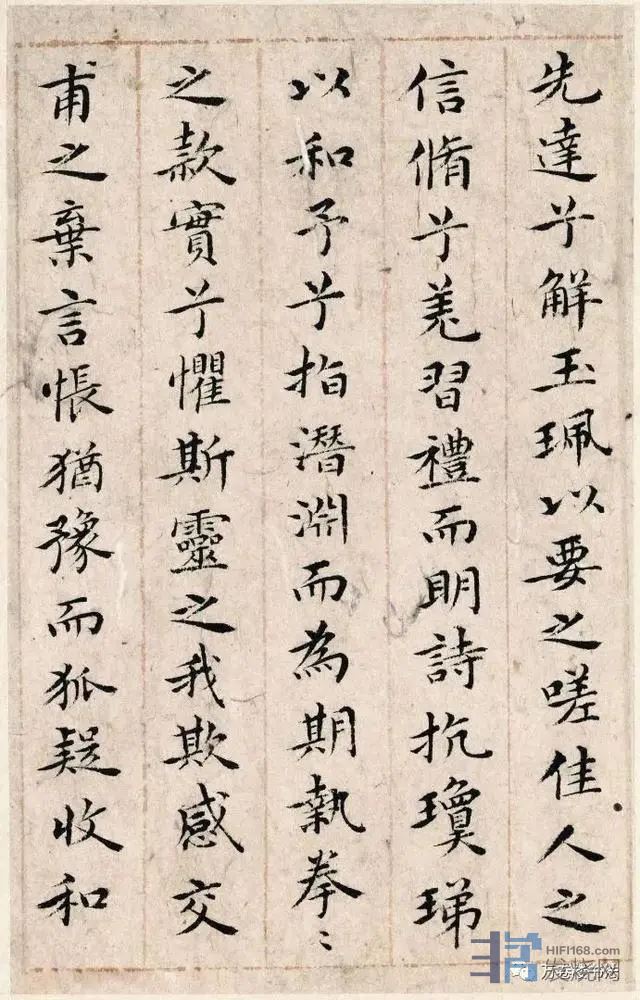 先達兮解玉珮以要之嗟佳人之
信脩兮羌習禮而明詩抗瓊珶
以和予兮指潛淵而為期執拳〻
之款實兮懼斯靈之我欺感交
甫之棄言悵猶豫而狐疑收和
HIFI168.com